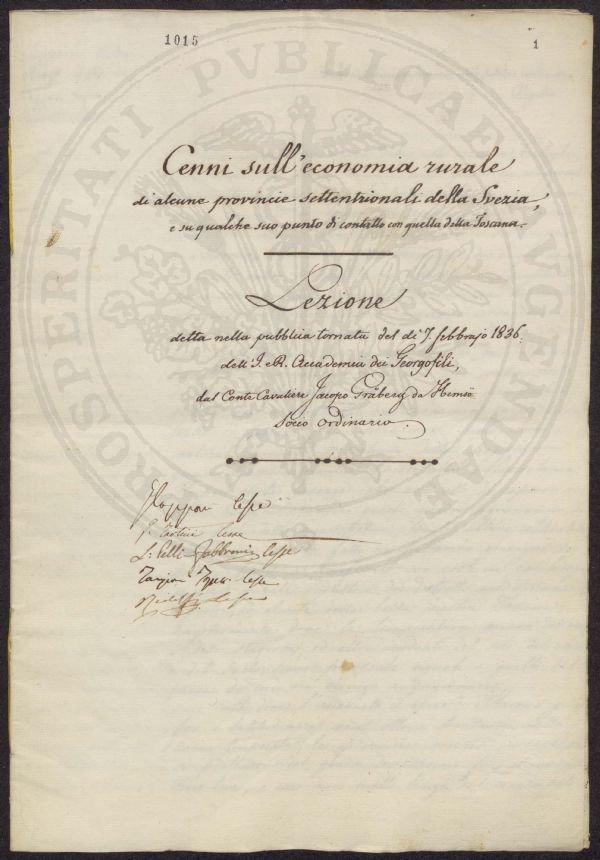 1015
1
PROSPERITATI PVBLICAE AVGENDAE
Cenni sull'economia rurale
di alcune provincie settentrionali della Svezia,
e su qualche suo punto di contatto con quella della Toscana.
Lezione
detta nella pubblica tornata del dì 7. febbrajo 1836.
dell'I. e R. Accademia dei Georgofili,
dal Conte Cavaliere Jacopo Gråberg da Hemsö
Socio ordinario.
lesse
lesse
L: Pelli Fabbroni lesse
lesse
Ridolfi lesse